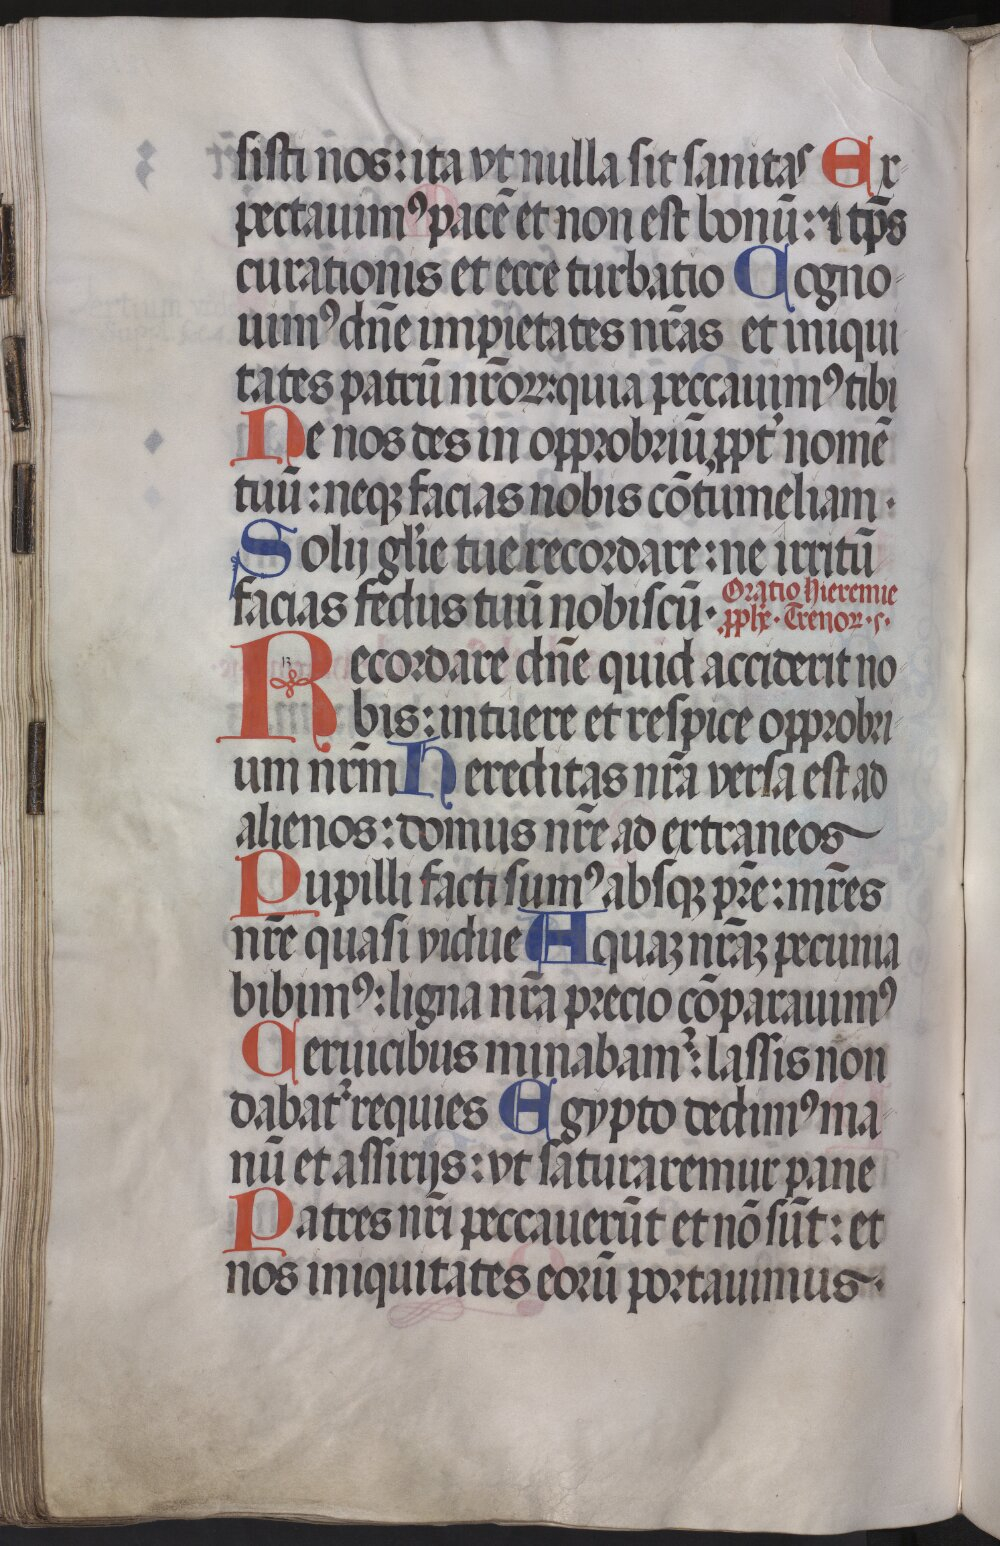 sisti nos: ita vt nulla sit sanitas Ex-
pectauimꝰ pacē et non est bonū: ⁊ tp̄s
curationis et ecce turbatio Cogno-
uimꝰ dn̄e impietates nr̄as et iniqui-
tates patrū nr̄oꝝ: quia peccauimꝰ tibi
Ne nos des in opprobriū ꝓpt' nomē
tuū: neqꝫ facias nobis cōtumeliam.
Solij gl'ie tue recordare: ne irritū
facias fedus tuū nobiscū.
Oratio hieremie
ꝓph̄e. Trenoꝝ. 5.
Recordare dn̄e quid acciderit no-
bis: intuere et respice opprobri-
um nr̄m Hereditas nr̄a versa est ad
alienos: domus nr̄e ad extraneos
Pupilli facti sumꝰ absqꝫ pr̄e: mr̄es
nr̄e quasi vidue Aquaꝫ nr̄aꝫ pecunia
bibimꝰ: ligna nr̄a precio cōparauimꝰ
Ceruicibus minabam᷑: lassis non
dabat᷑ requies Egypto dedimꝰ ma-
nū et assirijs: vt saturaremur pane
Patres nr̄i peccauerūt et nō sūt: et
nos iniquitates eorū portauimus.